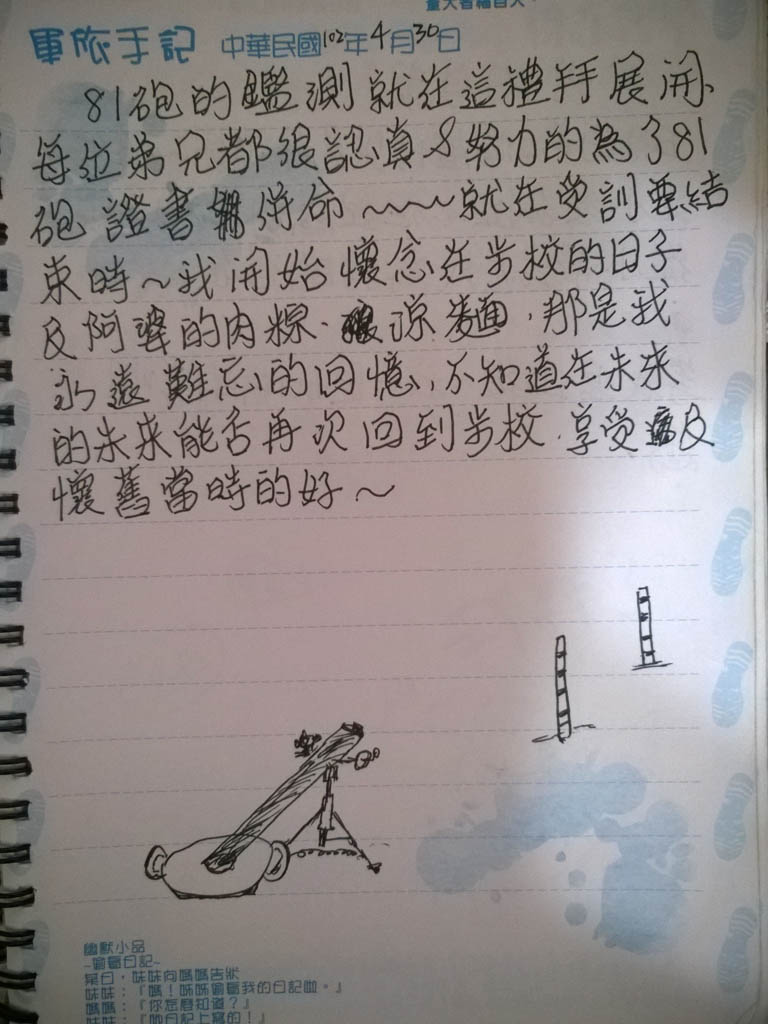 軍旅手記 中華民國102年4月30日
81砲的鑑測就在這禮拜展開、
每位弟兄都很認真&努力的為了81
砲證書併命~~~~就在受訓要結
束時~我開始懷念在步校的日子
及阿婆的肉粽、涼麵，那是我
永遠難忘的回憶、不知道在未來
的未來能否再次回到步校、享受及
懷舊當時的好~
幽默小品
~偷看日記~
某日，妹妹向媽媽告狀
妹妹：『媽！姊姊偷看我的日記啦。』
媽媽：『你怎麼知道？』
妹妹：『她日記上寫的！』